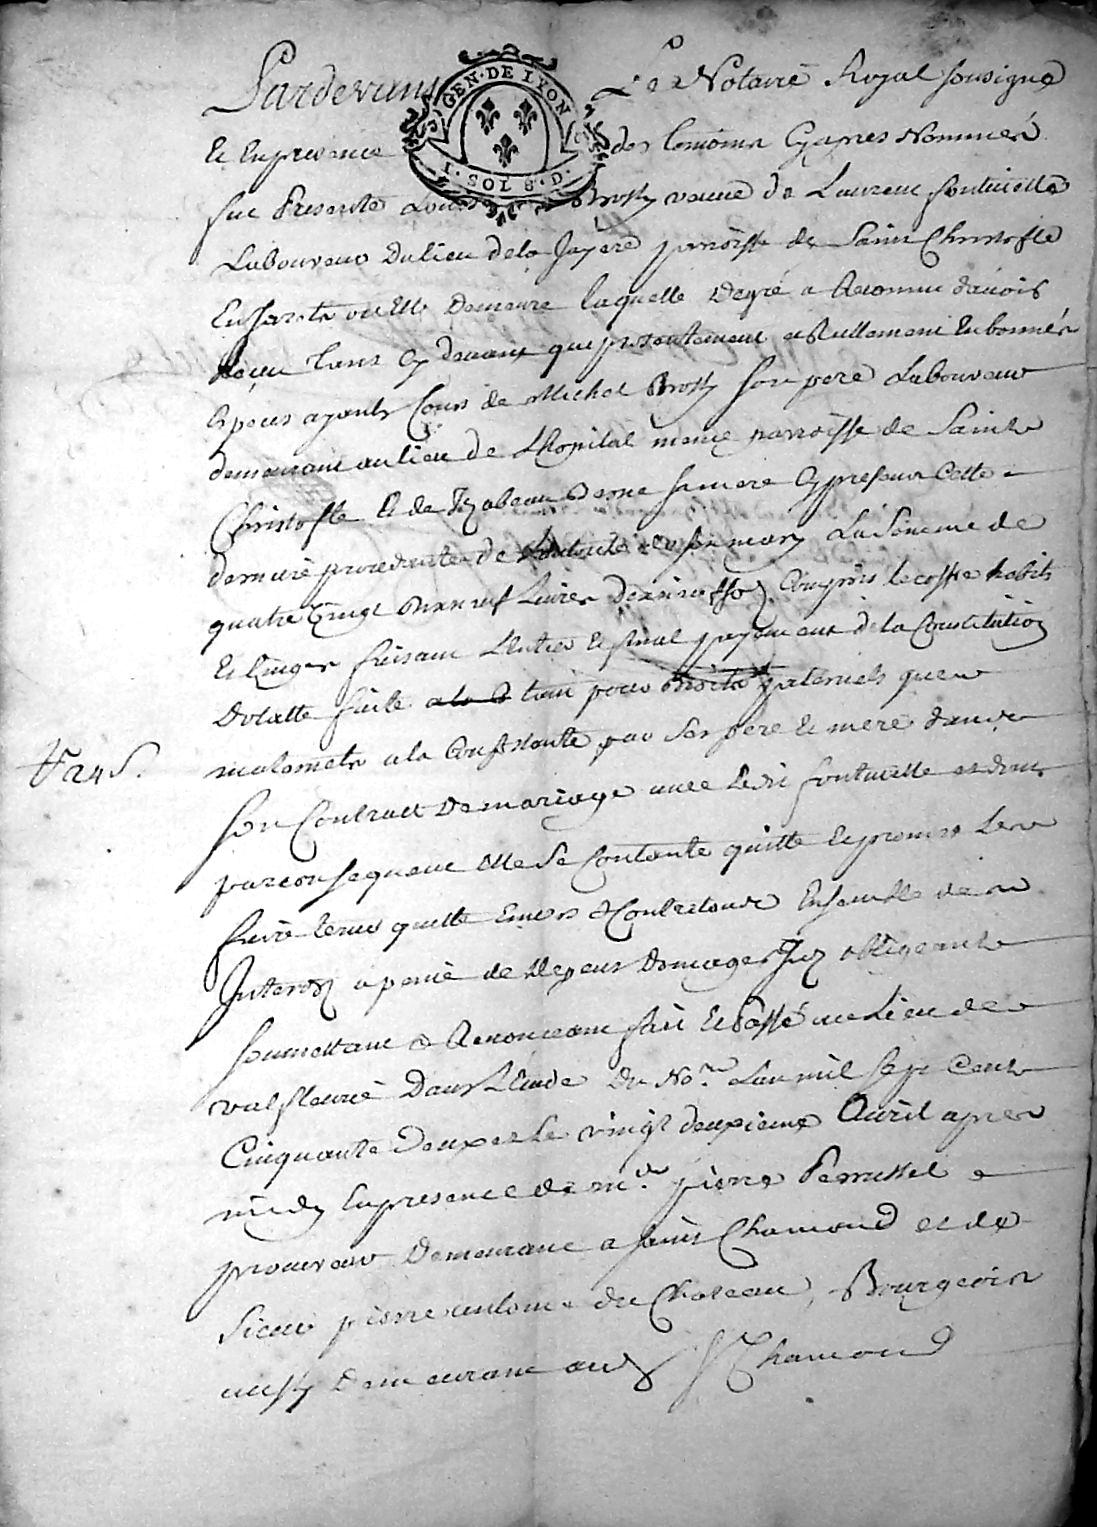 Pardevant Le Notaire Royal sousigné
GEN · DE LYON
I · SOL 8 · D ·
Et En presence des temoins Cyapres Nommés
fut Presente Brossy veuve de Laurent fontvieille
Laboureur du lieu de la Jayere parroisse de Saint Christofle
En Jarests ou Elle Demeure laquelle degré a Reconnu d'avoir
Receu tant cy devant que presentement et Reellement En bonnes
Especes ayants Cours de Michel Brossy son pere Laboureur
demeurant au lieu de Lhopital meme parroisse de Saint
Christofle Et de Izabeau sa mere Cy presente Cette
derniere procedante de Lautorité de son mary La Somme de
quatre vingt dixneuf Livres dixneuf sols Compris le coffre habits
Et linges faisant L'entier Et final payement de la Constitution
Dotalle faite a la tant pour Droits paternels que
maternels a la Constituante par Ses pere Et mere dans
V. 24 S.
son Contract de mariage avec Ledit fontvieille et dont
par consequent Elle Se Contente quitte Et promet Les
faire tenir quitte Envers Et Contre tous Ensemble des
Interets a peine de depens domages Inz obligeant
soumettant & Renonceant fait Et Passé au Lieu de
valfleurie Dans L'Etude du No.re L'an mil Sept Cent
Cinquante deux et Le vingt deuxieme Avril apres
midy En presence de m.e pierre Perrussel
procureur Demeurant a saint Chamond et de
Sieur pierre antoine du Chateau, Bourgeois
aussy Demeurant aud St Chamond